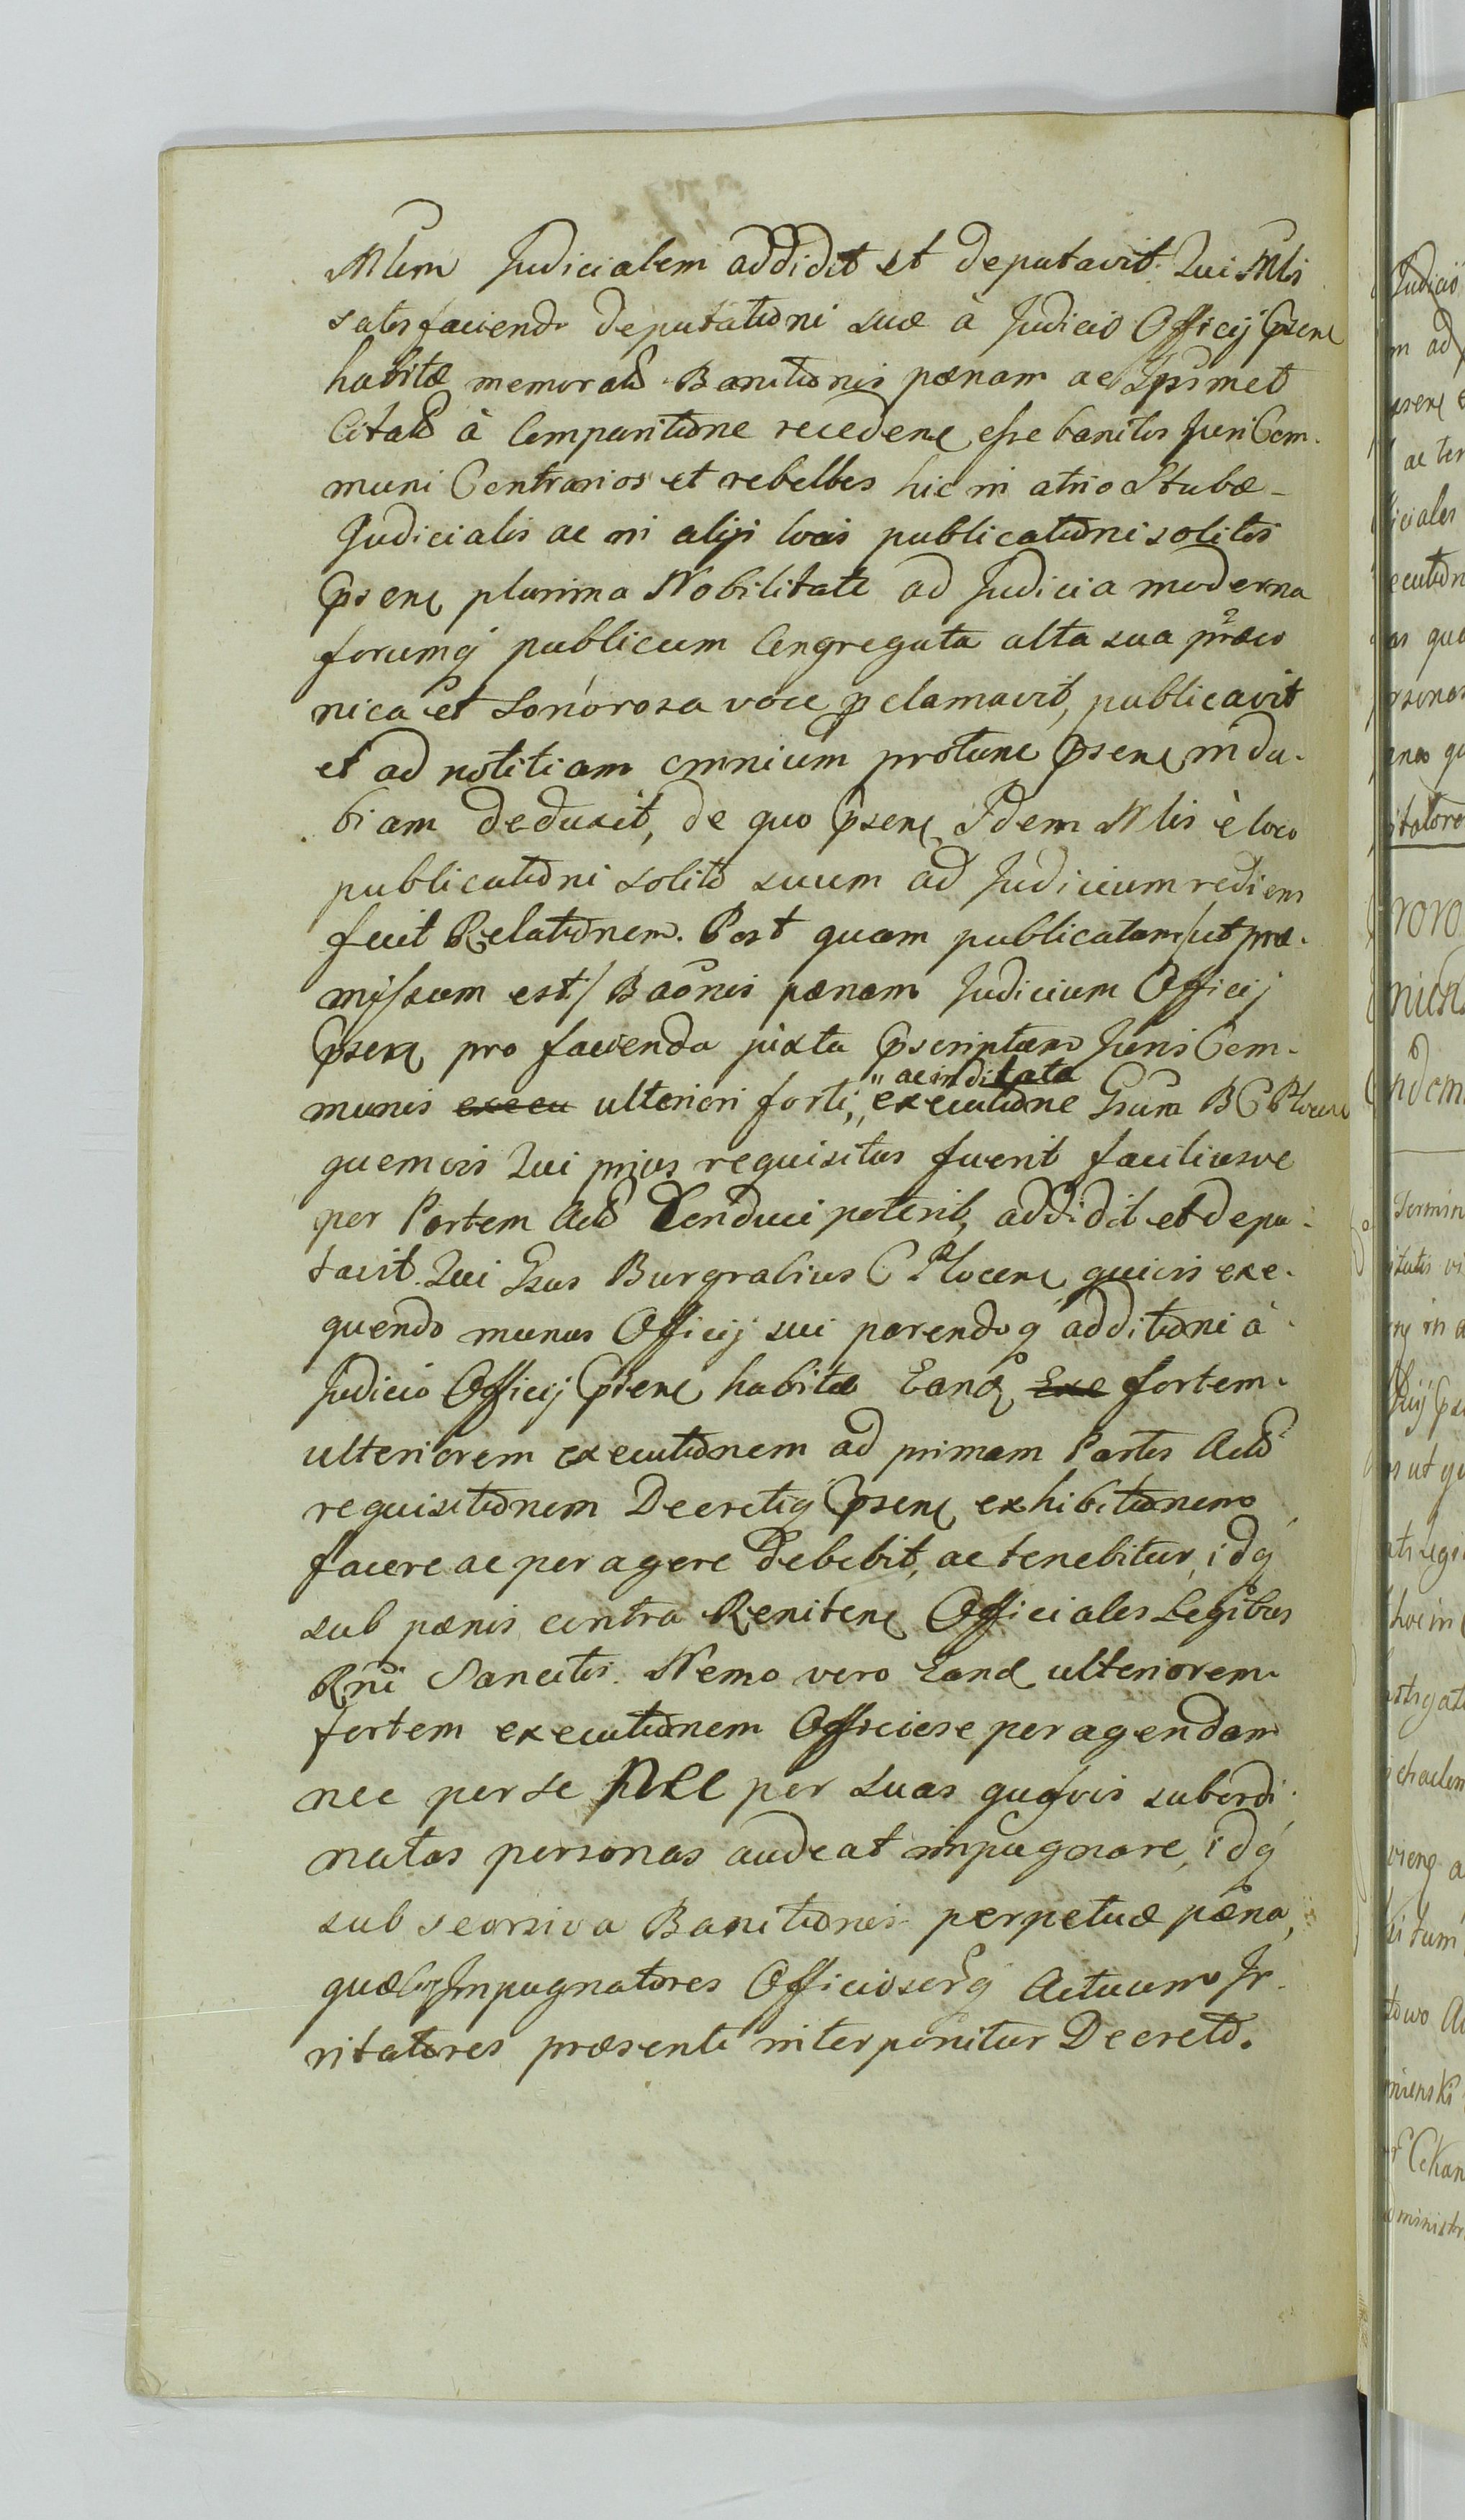 Mlem Judicialem addidit et deputavit. Qui Mlis
satisfaciendo deputationi suæ à Judicio Officij Psene
habitæ memorato Banitionis pænam ac Ipsimet
Citato à Comparitione recedene esse banitos Juri Com-
muni Contrarios et rebelles hic in atrio Stubæ
Judicialis ac in alijs locis publicationi solitis
Psene plurima Nobilitate ad Judicia moderna
forumq publicum Congregata alta sua præco
nica et Sonorosa voce pclamavit, publicavit
et ad notitiam omnium protunc Psene indu-
biam deduxit, de quo Psene Idem Mlis è loco
publicationi solito suum ad Judicium rediens
fecit Relationem. Post quam publicatam /ut præ-
missum est/ Baonis pænam Judicium Officij
Psene pro facienda juxta Pscriptum Juris Com-
munis execu ulteriori forti, ac inditata executione Gsum B C Plocene
quemvis Qui prius requisitus fuerit faciliusve
per Partem Acto Conduci poterit, addidit et depu-
tavit. Qui Gsus Burgrabius C Plocene quivis exe-
quendo munus Officij sui parendoq additioni à
Judicio Officij Psene habitæ Eand Exe fortem
ulteriorem executionem ad primam Partis Acto
requisitionem Decretiq Psene exhibitionem
facere ac peragere debebit, ac tenebitur, idq
sub pænis contra Renitene Officiales Legibus
Rni Sancitis. Nemo vero Eand ulteriorem
fortem executionem Officiose peragendam
nec per se nec per suas quasvis subordi-
natas personas audeat impugnare, idq
sub seorsiva Banitionis perpetuæ pæna,
quæ Impugnatores Officiosorq Actuum Ir-
ritatores præsenti interponitur Decreto.